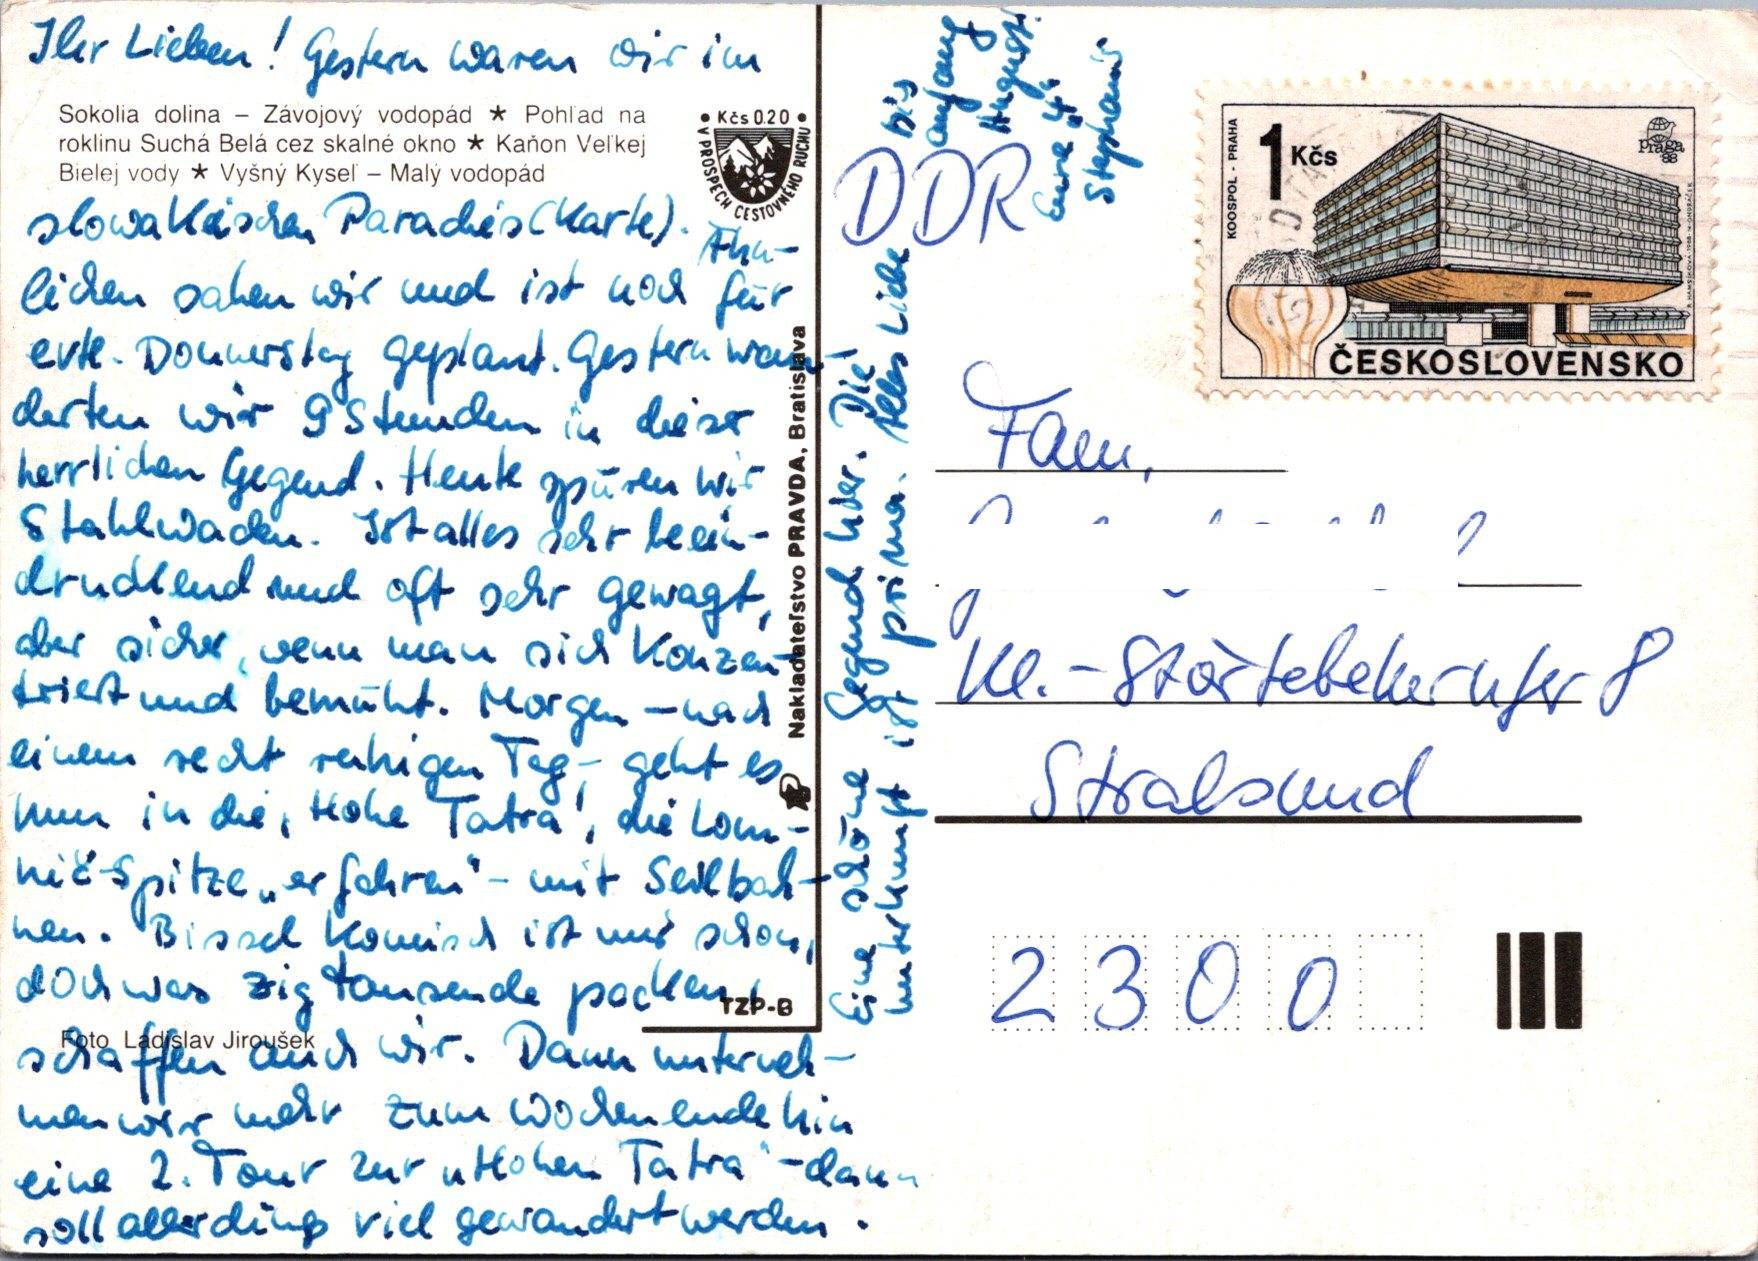 Ihr Lieben! Gestern waren wir im
Sokolia dolina – Závojový vodopád ★ Pohľad na
roklinu Suchá Belá cez skalné okno ★ Kaňon Veľkej
Bielej vody ★ Vyšný Kyseľ – Malý vodopád
• Kčs 0.20 •
V PROSPECH CESTOVNÉHO RUCHU
slowakischen Paradies (Karte). Ähn-
lichen sahen wir und ist noch für
evtl. Donnerstag geplant. Gestern wan-
derten wir 9 Stunden in dieser
herrlichen Gegend. Heute spüren wir
Stahlwaden. Ist alles sehr beein-
druckend und oft sehr gewagt,
aber sicher, wenn man sich konzen-
triert und bemüht. Morgen – nach
einem recht ruhigen Tag, – geht es
nun in die "Hohe Tatra", die Lom-
nič-Spitze „erfahren" – mit Seilbah-
nen. Bissel komisch ist mir schon,
doch was zigtausende packen,
schaffen auch wir. Dann unterneh-
men wir mehr zum Wochenende hin
eine 2. Tour zur "Hohen Tatra" – dann
soll allerdings viel gewandert werden.
Foto Ladislav Jiroušek
TZP-B
Nakladateľstvo PRAVDA, Bratislava
Eine schöne Gegend hier. Die
Unterkunft ist prima. Alles Liebe
bis
anfang
August.
Eure 4"
Stephanie
DDR
KOOSPOL - PRAHA
1 Kčs
praga 88
ČESKOSLOVENSKO
Fam.
Kl.-Störtebekerufer 8
Stralsund
2300